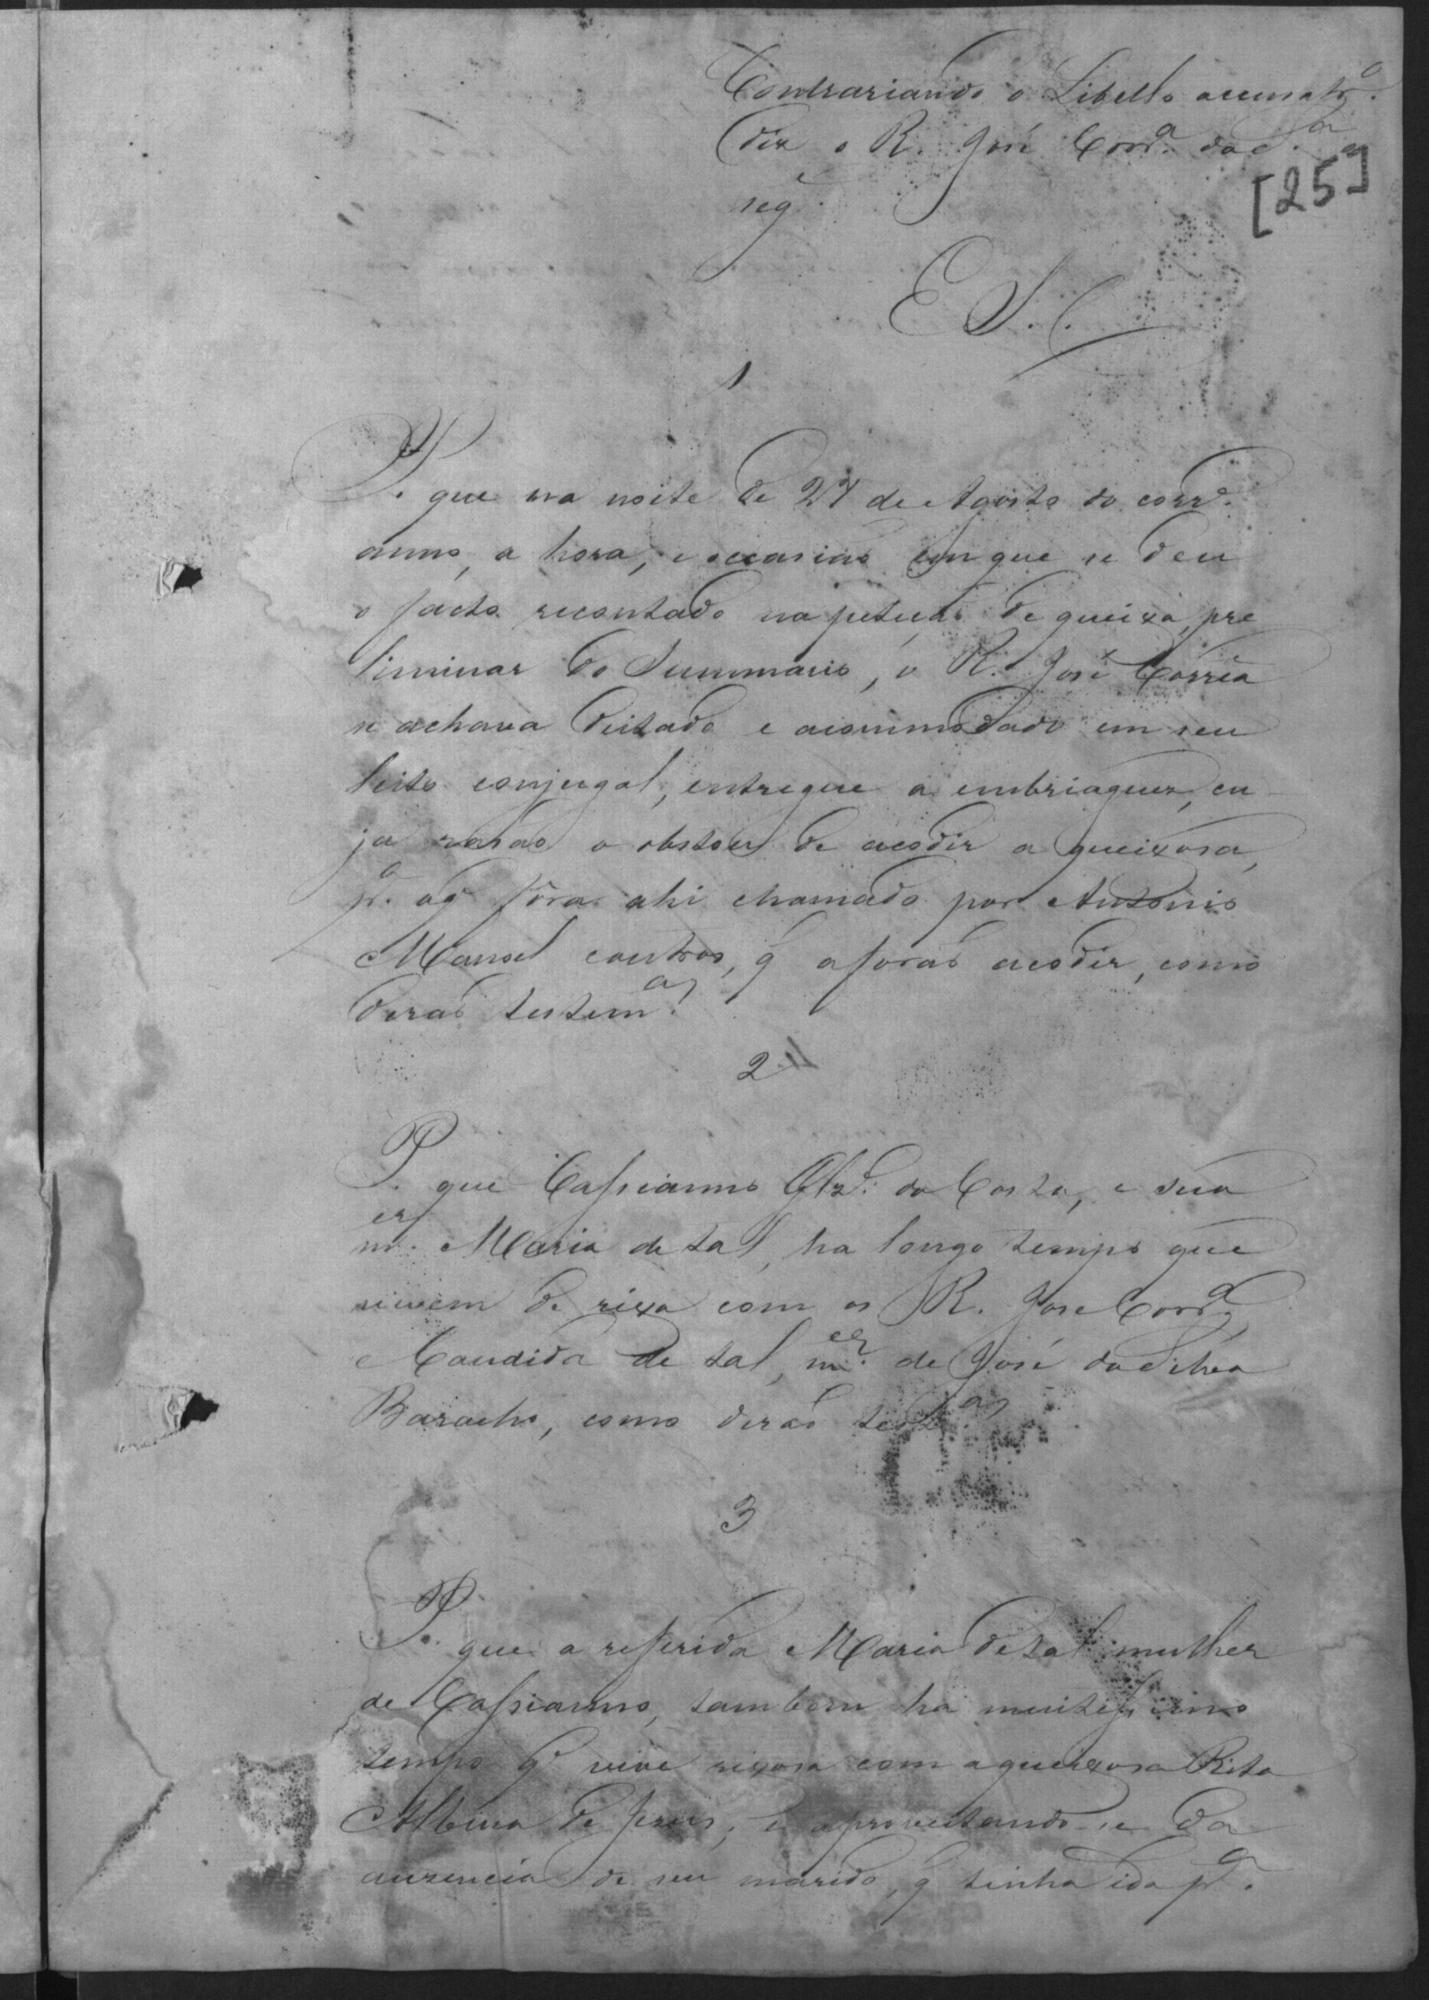 Contrariando o Libello accusatr.º
diz o R. José Corr.ª da S.ª
[25]
seg.e
E. S. C.
1
P. que na noite de 27 de Agosto do corr.e
anno, a hora, e occasião em que se deu
o facto recontado na petição de queixa, pre
liminar do Summario, o R. José Corrêa
se achava deitado e acommodado em seu
leito conjugal, entregue a embriaguez, cu-
ja rasão o obstou de acodir a queixosa,
p.ª o q' fôra ahi chamado por Antonio
Manoel e outros, q' a forão acodir, como
dirão testem.as
2
P. que Cassianno Glz.' da Costa, e sua
m.er Maria de tal, ha longo tempo que
vivem de rixa com os R. José Corr.ª,
Candida de tal, m.er de José da Silva
Baracho, como dirão test.as
3
P. que a referida Maria de tal mulher
de Cassianno, tambem ha muitissimo
tempo q' vive rixosa com a queixosa Rita
Albina de Jesus, e aproveitando-se da
auzencia de seu marido, q' tinha ido p.ª